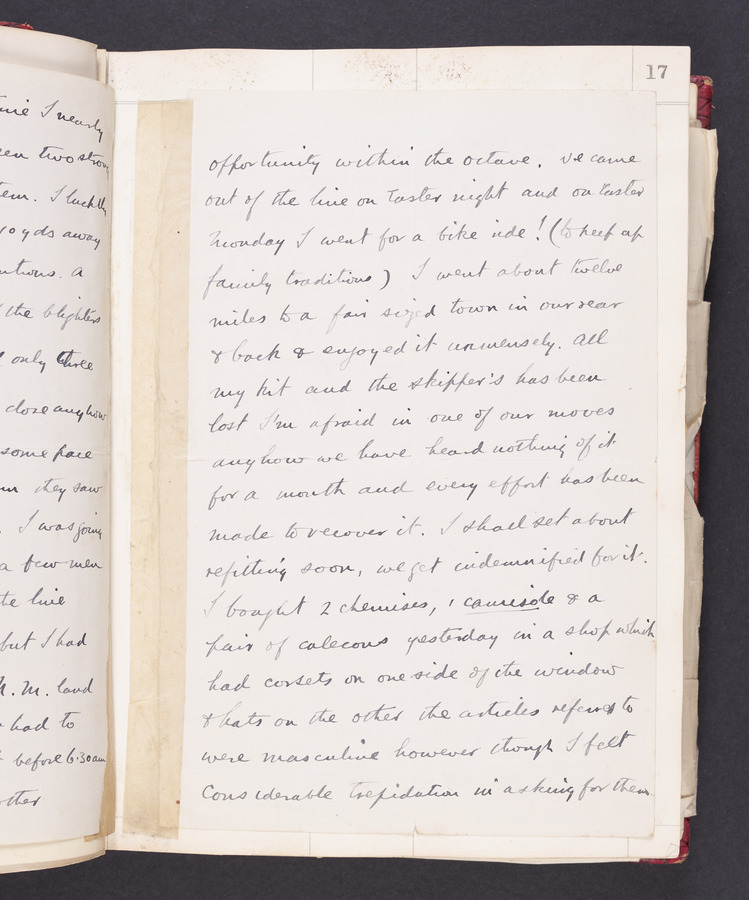 17
nearly
two strong
I luckily
70 yds away
a
the blighters
only three
close anyhow
some face
they saw
I was going
a few men
line
but I had
M. land
had to
before 6.30 am
opportunity within the octave. We came
out of the line on Easter night and on Easter
Monday I went for a bike ride! (to keep up
family traditions) I went about twelve
miles to a fair sized town in our rear
& back & enjoyed it immensely. All
my kit and the skipper's has been
lost I'm afraid in one of our moves
anyhow we have heard nothing of it
for a month and every effort has been
made to recover it. I shall set about
refitting soon, we get indemnified for it.
I bought 2 chemises, 1 camisole & a
pair of calecons yesterday in a shop which
had corsets on one side of the window
& hats on the other the articles referred to
were masculine however though I felt
considerable trepidation in asking for them.